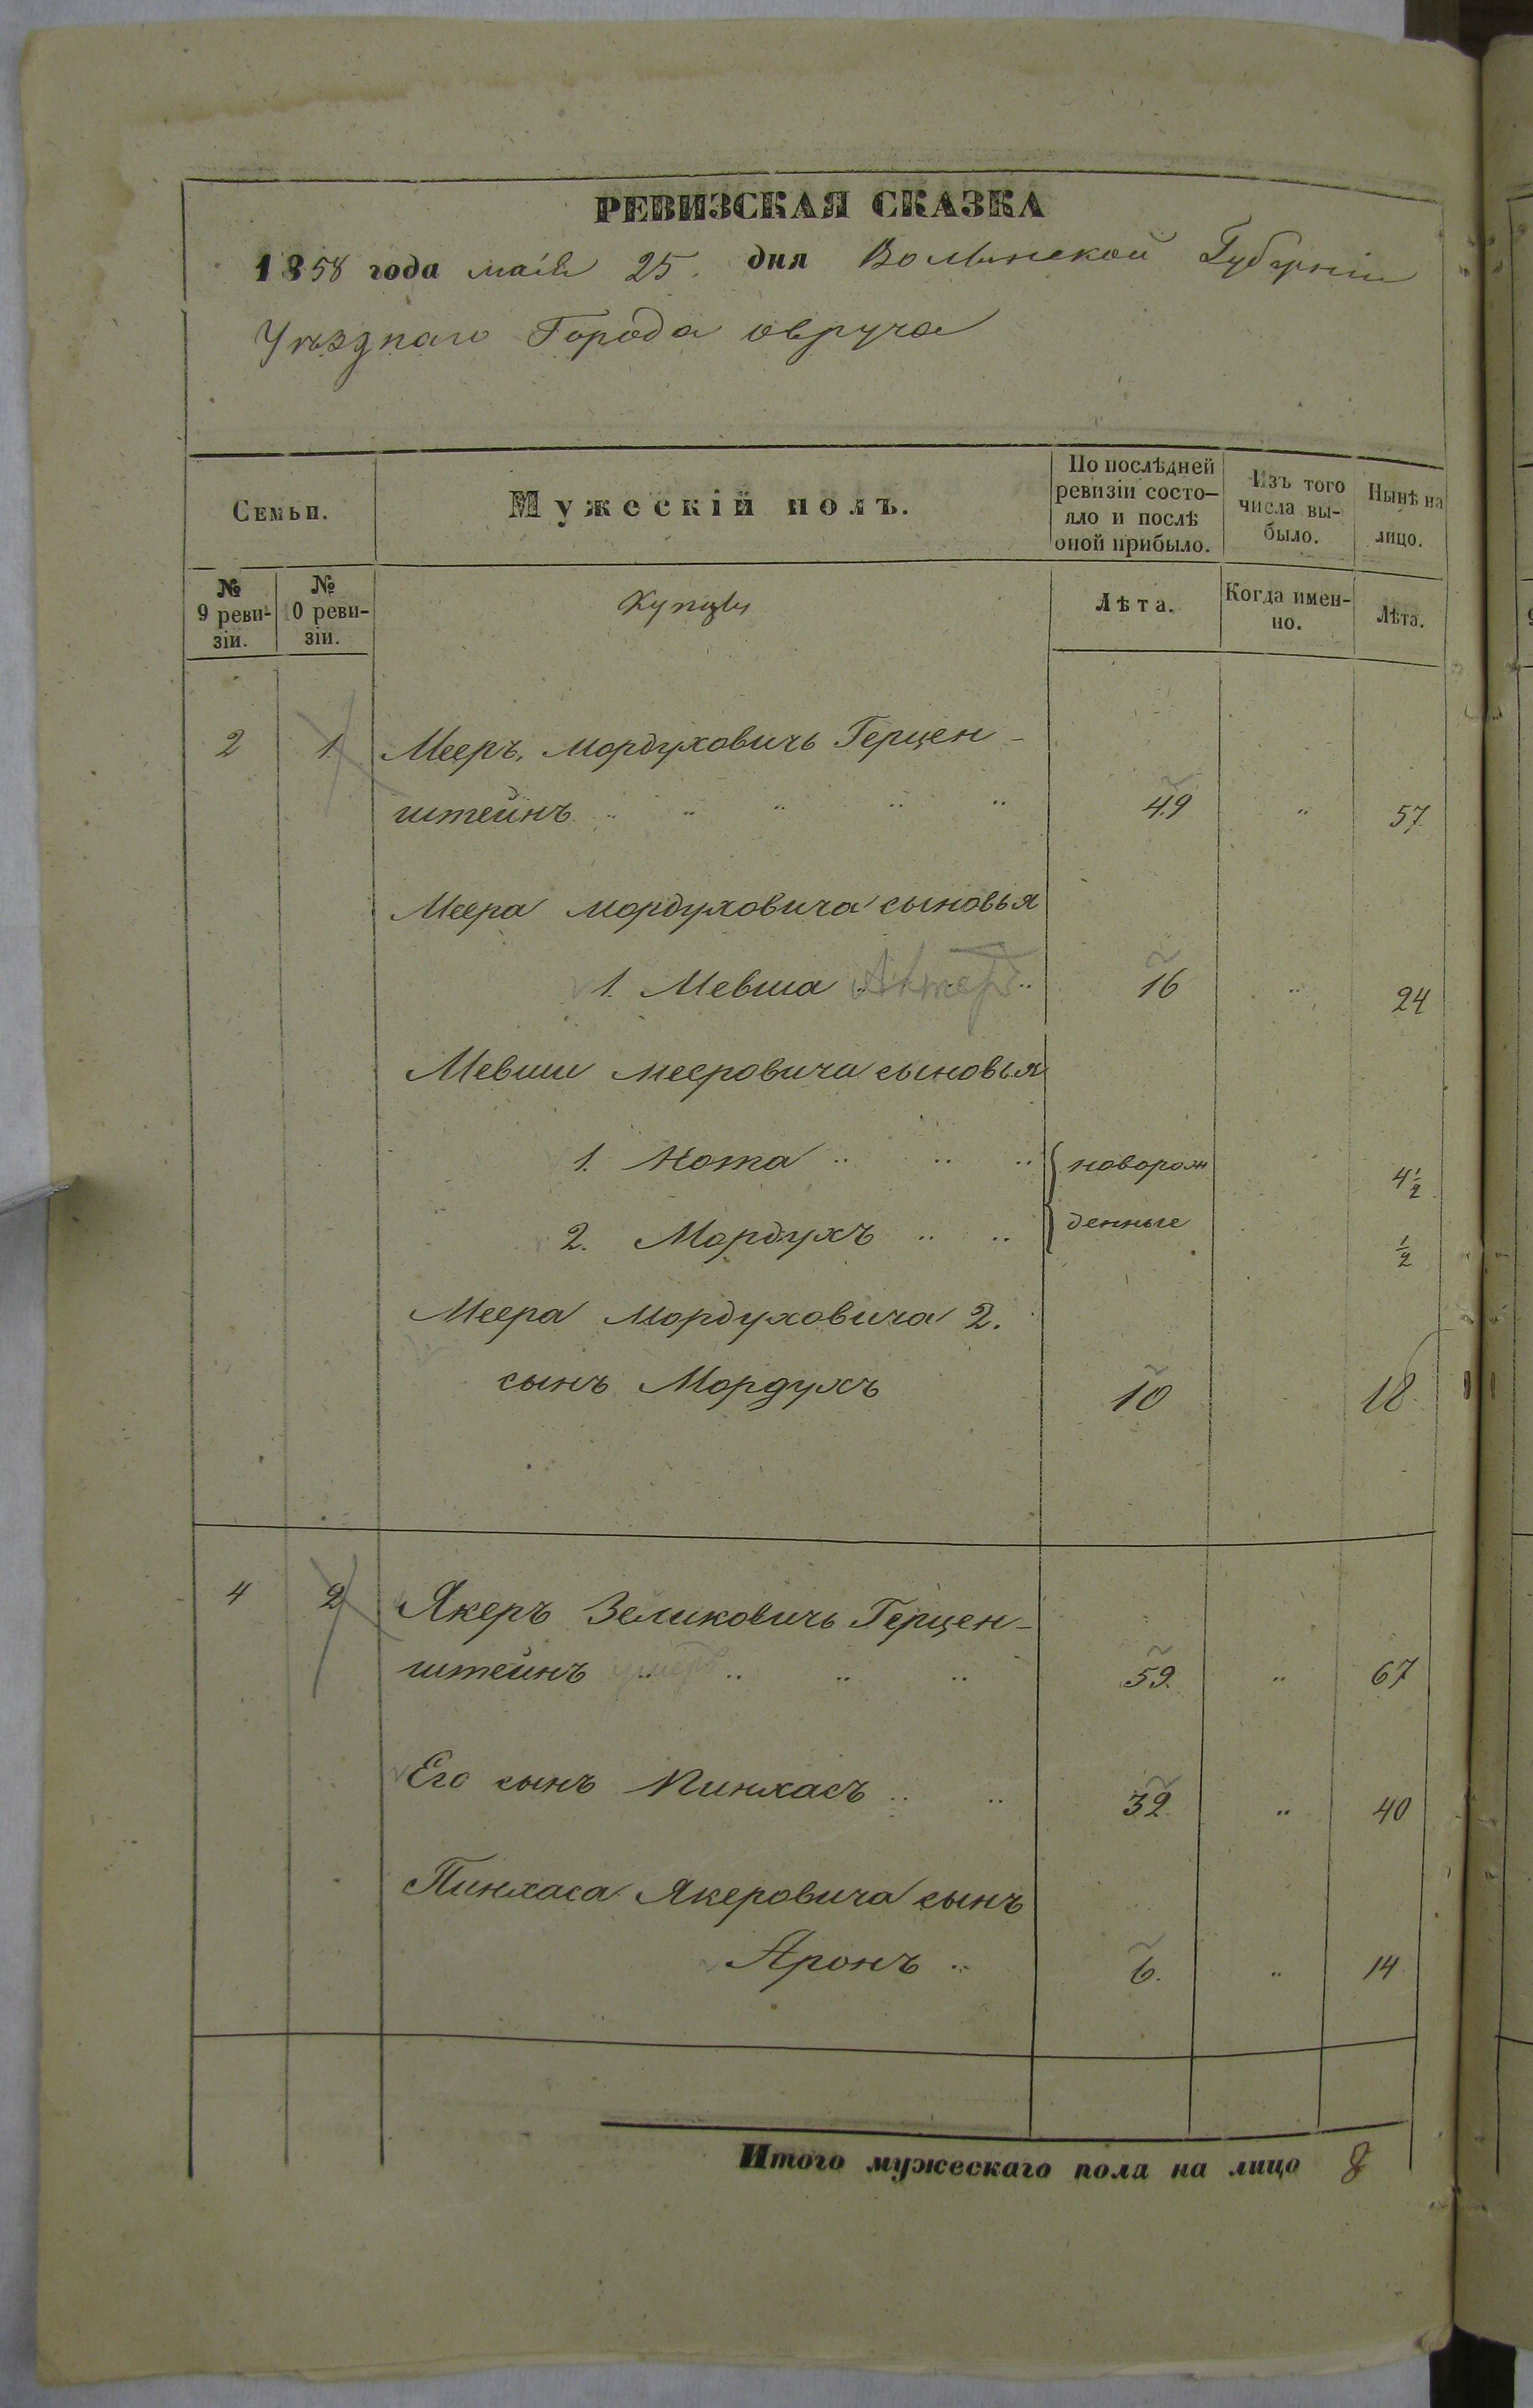 РЕВИЗСКАЯ СКАЗКА
1858 года маія 25. дня Волынской Губерніи
Уѣзднаго Города овруча
Семьи. Мужескій полъ. По послѣдней ревизіи состояло и послѣ оной прибыло. Изъ того числа выбыло. Нынѣ на лицо.
№ 9 ревизіи. № 10 ревизіи. Купцы Лѣта. Когда именно. Лѣта.
2 1 Мееръ Мордуховичь Герцен-
штейнъ 49 " 57
Меера Мордуховича сыновья
1. Мевша 16 " 24
Мевши Мееровича сыновья
1. Нота новорож 4½
2. Мордухъ денные ½
Меера Мордуховича 2.
сынъ Мордухъ 10 18
4 2 Якеръ Зеликовичь Герцен-
штейнъ умеръ 59. " 67
Его сынъ Пинхасъ 32 " 40
Пинхаса Якеровича сынъ
Аронъ 6. " 14
Итого мужескаго пола на лицо 8